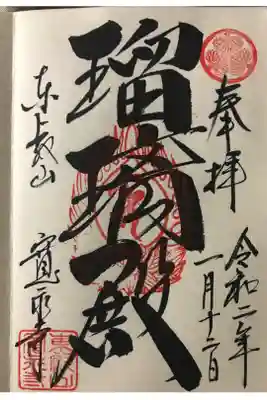 奉拝
令和二年
一月十二日
瑠璃殿
東叡山
寛永寺